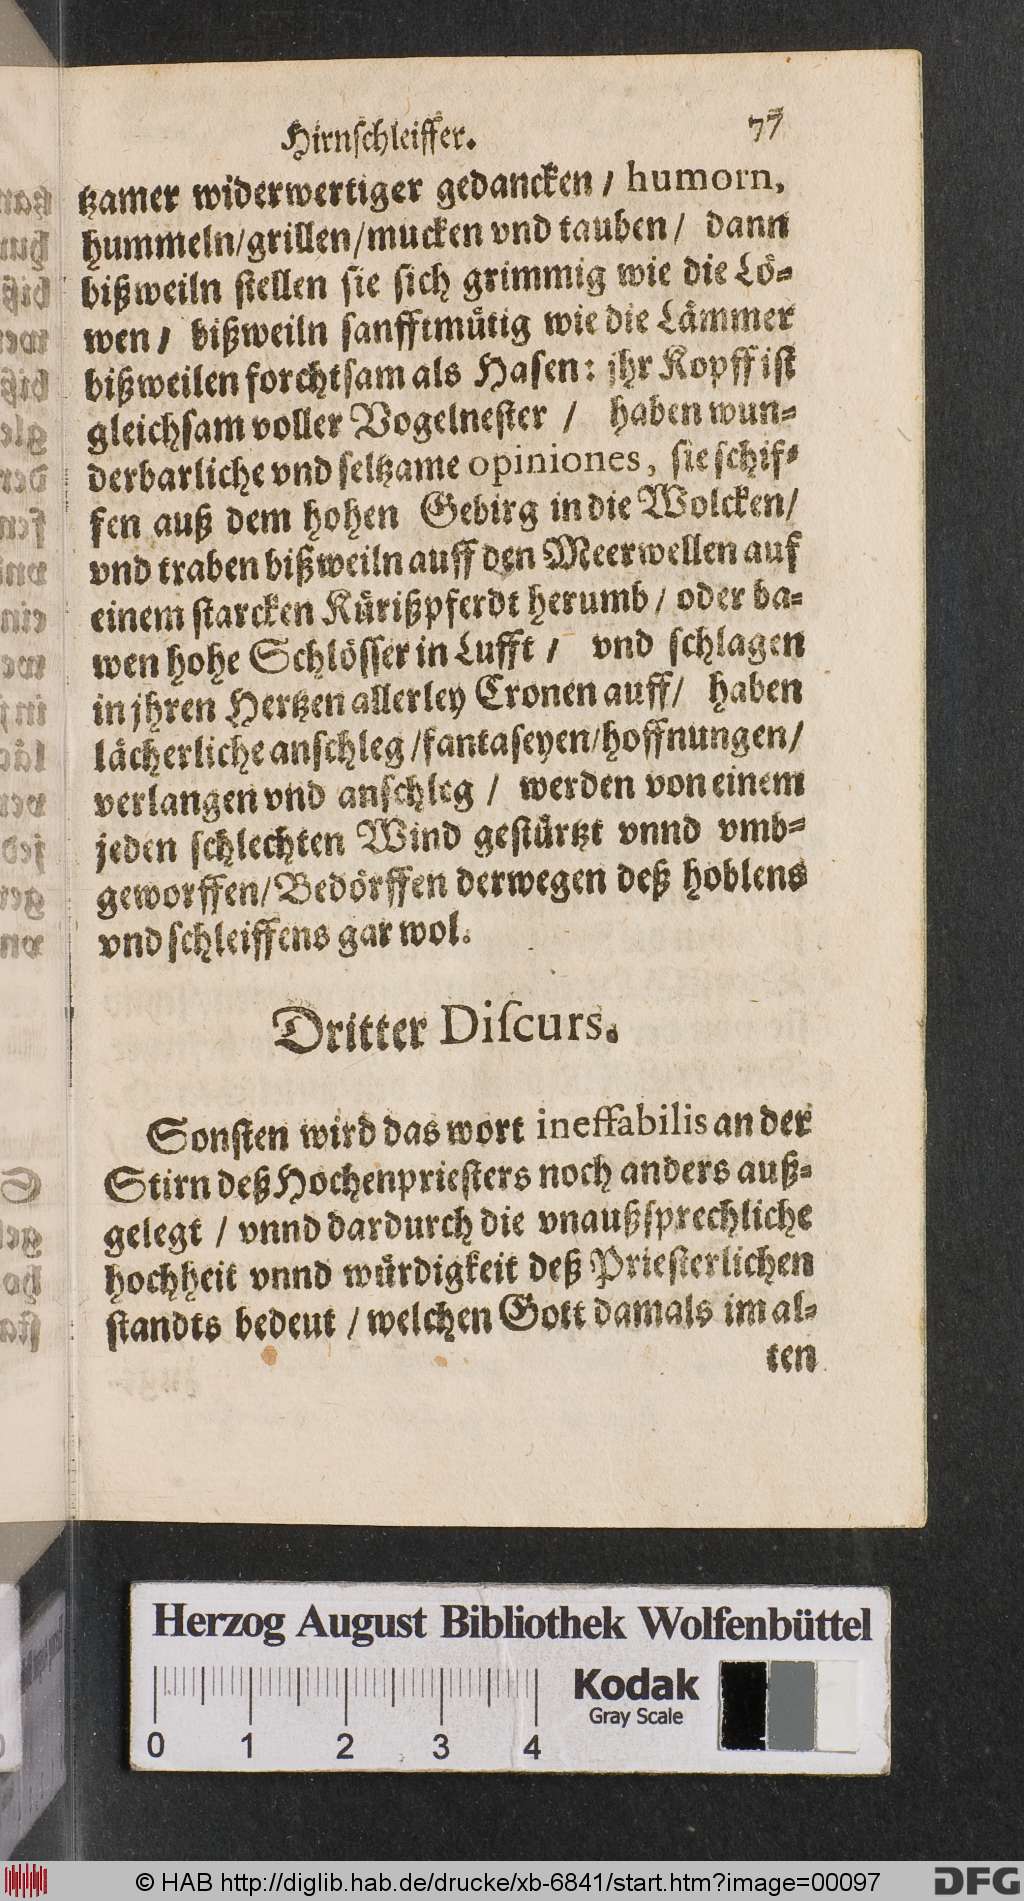 Hirnſchleiffer. 77
tzamer widerwertiger gedancken / humorn,
hummeln/grillen/mucken vnd tauben / dann
bißweiln ſtellen ſie ſich grimmig wie die Lö-
wen / bißweiln ſanfftmütig wie die Lämmer
bißweilen forchtſam als Haſen: jhr Kopff iſt
gleichſam voller Vogelneſter / haben wun-
derbarliche vnd ſeltzame opiniones, ſie ſchif-
fen auß dem hohen Gebirg in die Wolcken/
vnd traben bißweiln auff den Meerwellen auf
einem ſtarcken Kürißpferdt herumb / oder ba-
wen hohe Schlöſſer in Lufft / vnd ſchlagen
in jhren Hertzen allerley Cronen auff/ haben
lächerliche anſchleg /fantaſeyen/hoffnungen/
verlangen vnd anſchleg / werden von einem
jeden ſchlechten Wind geſtürtzt vnnd vmb-
geworffen/ Bedörffen derwegen deß hoblens
vnd ſchleiffens gar wol.
Dritter Diſcurs.
Sonſten wird das wort ineffabilis an der
Stirn deß Hochenprieſters noch anders auß-
gelegt / vnnd dardurch die vnaußſprechliche
hochheit vnnd würdigkeit deß Prieſterlichen
ſtandts bedeut / welchen Gott damals im al-
ten
Herzog August Bibliothek Wolfenbüttel
Kodak
Gray Scale
0 1 2 3 4
© HAB http://diglib.hab.de/drucke/xb-6841/start.htm?image=00097
DFG